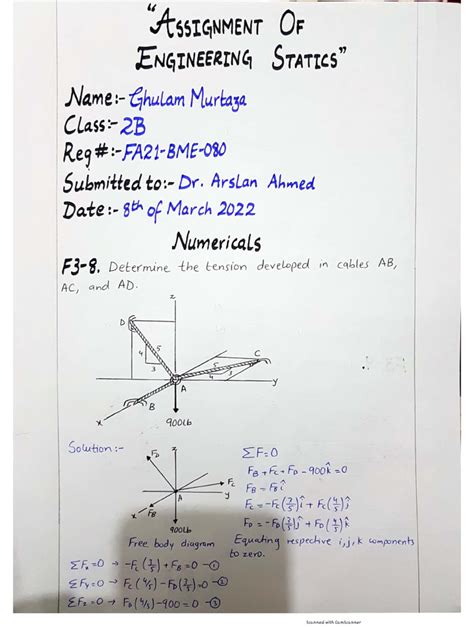 "ASSIGNMENT OF
ENGINEERING STATICS"
Name:- Ghulam Murtaza
Class:- 2B
Reg #:- FA21-BME-080
Submitted to:- Dr. Arslan Ahmed
Date:- 8th of March 2022
Numericals
F3-8. Determine the tension developed in cables AB,
AC, and AD.
z
D
5
4
3
C
5
4
3
A
y
B
x
900lb
Solution:-
z
FD
FC
A
y
FB
x
900lb
Free body diagram
ΣF=0
FB + FC + FD - 900k̂ = 0
FB = FB î
FC = -FC(3/5)î + FC(4/5)ĵ
FD = -FD(3/5)ĵ + FD(4/5)k̂
Equating respective i, j, k components
to zero.
ΣFx = 0 → -FC(3/5) + FB = 0 -①
ΣFy = 0 → FC(4/5) - FD(3/5) = 0 -②
ΣFz = 0 → FD(4/5) - 900 = 0 -③
Scanned with CamScanner